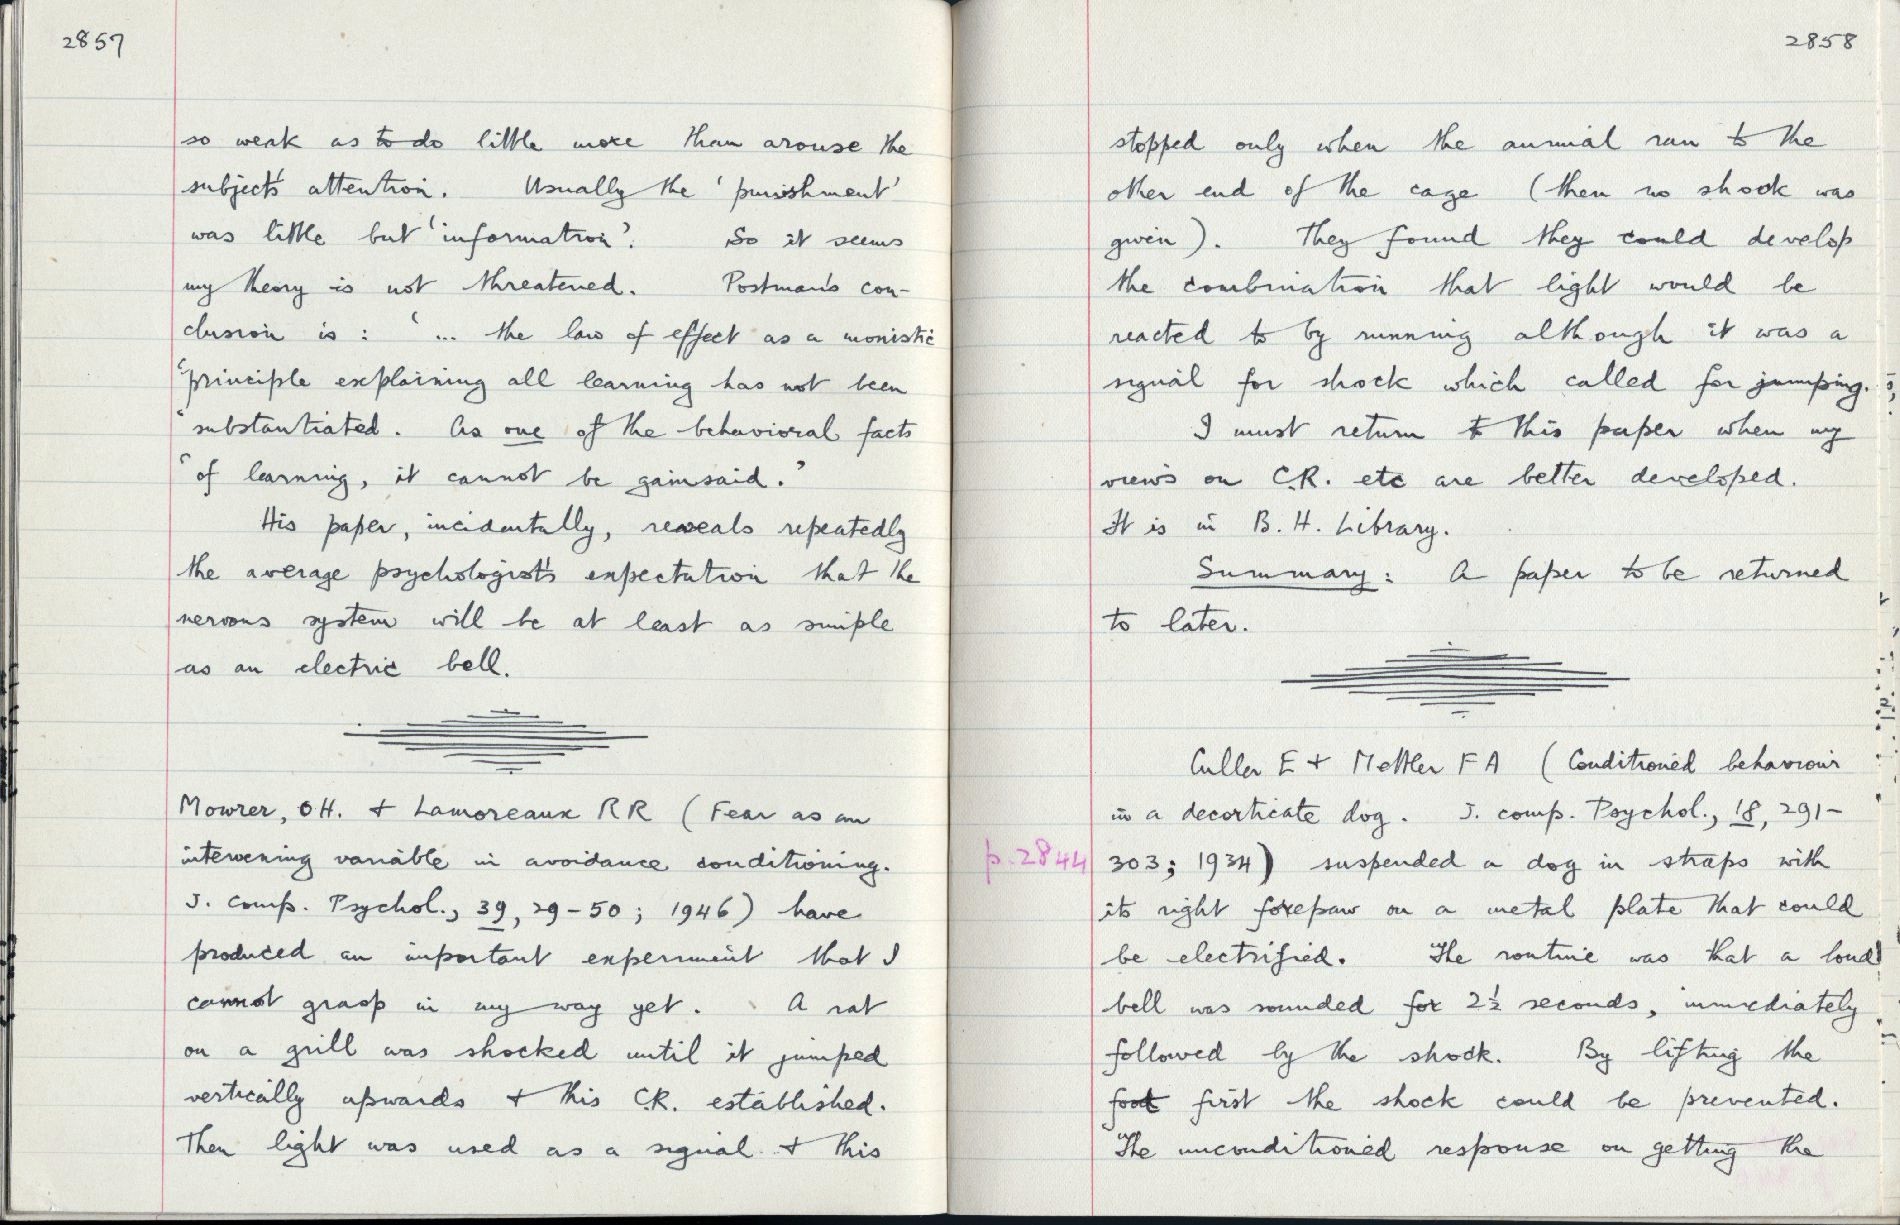 2857
so weak as to do little more than arouse the
subject's attention. Usually the 'punishment'
was little but 'information'. So it seems
my theory is not threatened. Postman's con-
clusion is : '... the law of effect as a monistic
'principle explaining all learning has not been
'substantiated. As one of the behavioral facts
'of learning, it cannot be gainsaid.'
His paper, incidentally, reveals repeatedly
the average psychologist's expectation that the
nervous system will be at least as simple
as an electric bell.
Mowrer, OH. + Lamoreaux RR (Fear as an
intervening variable in avoidance conditioning.
J. comp. Psychol., 39, 29-50; 1946) have
produced an important experiment that I
cannot grasp in my way yet. A rat
on a grill was shocked until it jumped
vertically upwards + this C.R. established.
Then light was used as a signal + this
2858
stopped only when the animal ran to the
other end of the cage (then no shock was
given). They found they could develop
the combination that light would be
reacted to by running although it was a
signal for shock which called for jumping.
I must return to this paper when my
views on C.R. etc are better developed.
It is in B.H. Library.
Summary: A paper to be returned
to later.
Culler E + Mettler FA (Conditioned behaviour
in a decorticate dog. J. comp. Psychol., 18, 291-
p.2844 303; 1934) suspended a dog in straps with
its right forepaw on a metal plate that could
be electrified. The routine was that a loud
bell was sounded for 2½ seconds, immediately
followed by the shock. By lifting the
foot first the shock could be prevented.
The unconditioned response on getting the